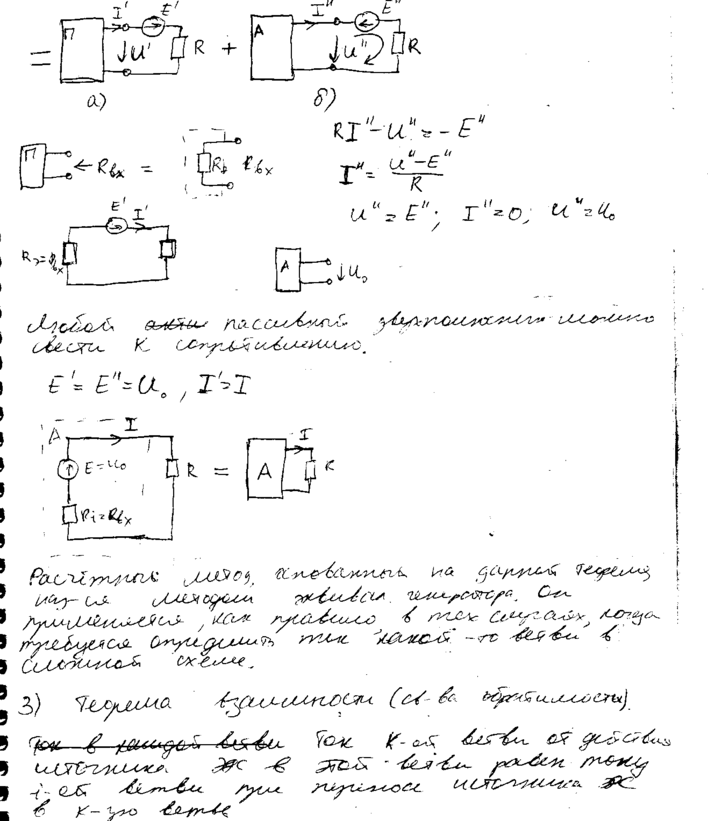 I' E' I" E"
= П U' R + A U" R
а) б)
RI" - U" = - E"
П ← Rвх = Ri Rвх
I" = (U" - E") / R
U" = E"; I" = 0; U" = U₀
E' I'
R = Rвх A U₀
Любой пассивный можно
свести к сопротивлению.
E' = E" = U₀, I' = I
A I I
E = U₀ R = A R
Ri = Rвх
Расчётный метод, основанный на данной теореме
наз-ся методом эквивал. генератора. Он
применяется, как правило в тех случаях, когда
требуется определить ток какой-то ветви в
сложной схеме.
3) Теорема взаимности (св-ва обратимости).
Ток в каждой ветви Ток К-ой ветви от действия
источника в ветви равен току
i-ой ветви при переносе источника
в к-ую ветвь